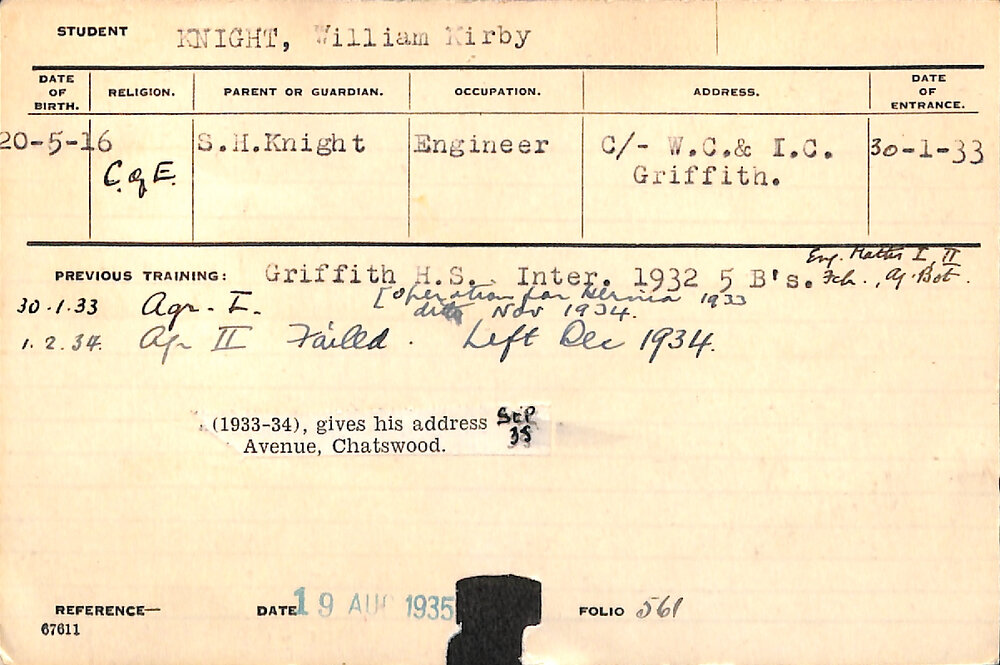 STUDENT KNIGHT, William Kirby
DATE OF BIRTH. RELIGION. PARENT OR GUARDIAN. OCCUPATION. ADDRESS. DATE OF ENTRANCE.
20-5-16 S.H.Knight Engineer C/- W.C.& I.C. 30-1-33
C. of E. Griffith.
Eng. Maths I, II
PREVIOUS TRAINING: Griffith H.S. Inter. 1932 5 B's. Fch., Ag. Bot.
30.1.33 Agr. I. [Operation for Hernia 1933
ditto Nov 1934.
1.2.34. Agr II Failed. Left Dec 1934.
(1933-34), gives his address SEP
Avenue, Chatswood. 35
REFERENCE— DATE 19 AUG 1935 FOLIO 561
67611